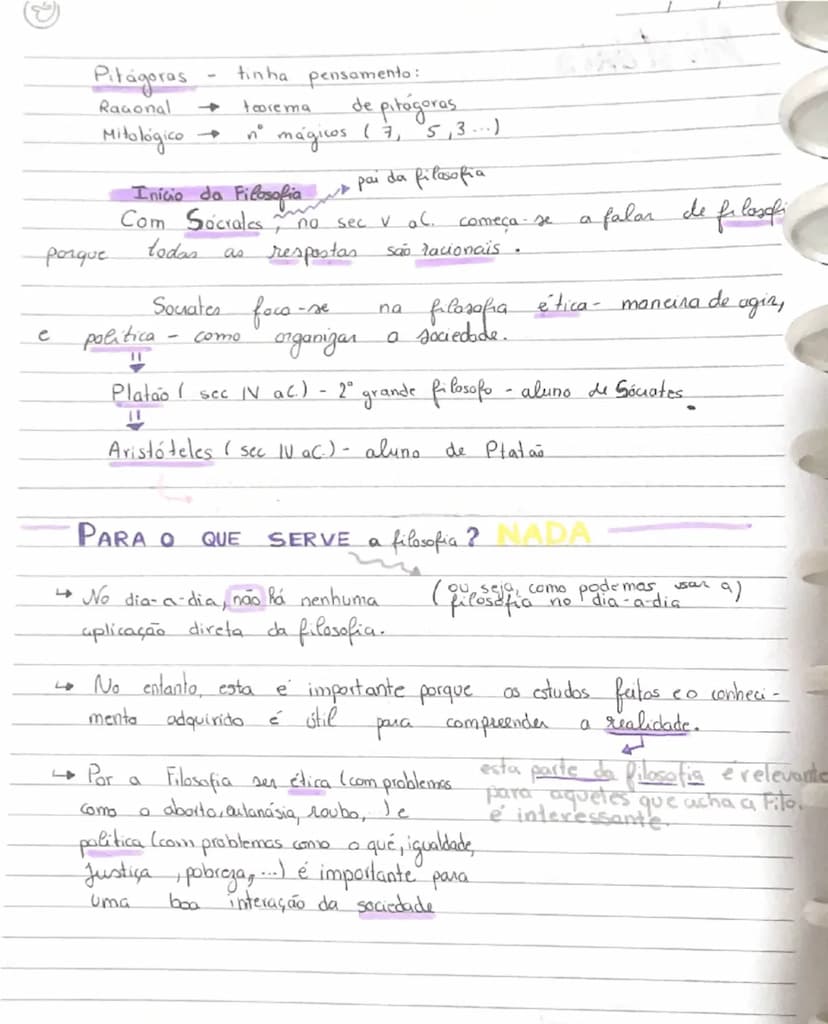 Pitágoras - tinha pensamento:
Racional → teorema de pitágoras
Mitológico → nº mágicos (7, 5, 3...)
pai da filosofia
Início da Filosofia
Com Sócrates, no sec V aC. começa-se a falar de filosofi
porque todas as respostas são racionais.
Socrates foca-se na filosofia ética - maneira de agir,
e política - como organizar a sociedade.
Platão (sec IV aC.) - 2º grande filosofo - aluno de Sócrates.
Aristóteles (sec IV aC.) - aluno de Platão
PARA O QUE SERVE a filosofia? NADA
↳ No dia-a-dia, não há nenhuma
aplicação direta da filosofia.
(ou seja, como podemos usar a)
filosofia no dia-a-dia
↳ No entanto, esta é importante porque os estudos feitos e o conheci-
mento adquirido é útil para compreender a realidade.
esta parte da filosofia é relevante
para aqueles que acha a Filo.
é interessante.
↳ Por a Filosofia ser ética (com problemas
como o aborto, eutanásia, roubo, ) e
política (com problemas como o quê, igualdade,
Justiça, pobreza, ...) é importante para
uma boa interação da sociedade